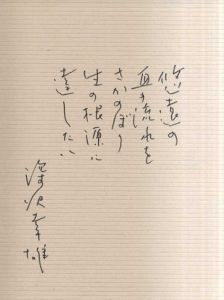 悠遠の
血の流れを
さかのぼり
生の根源に
達したい
深沢幸雄